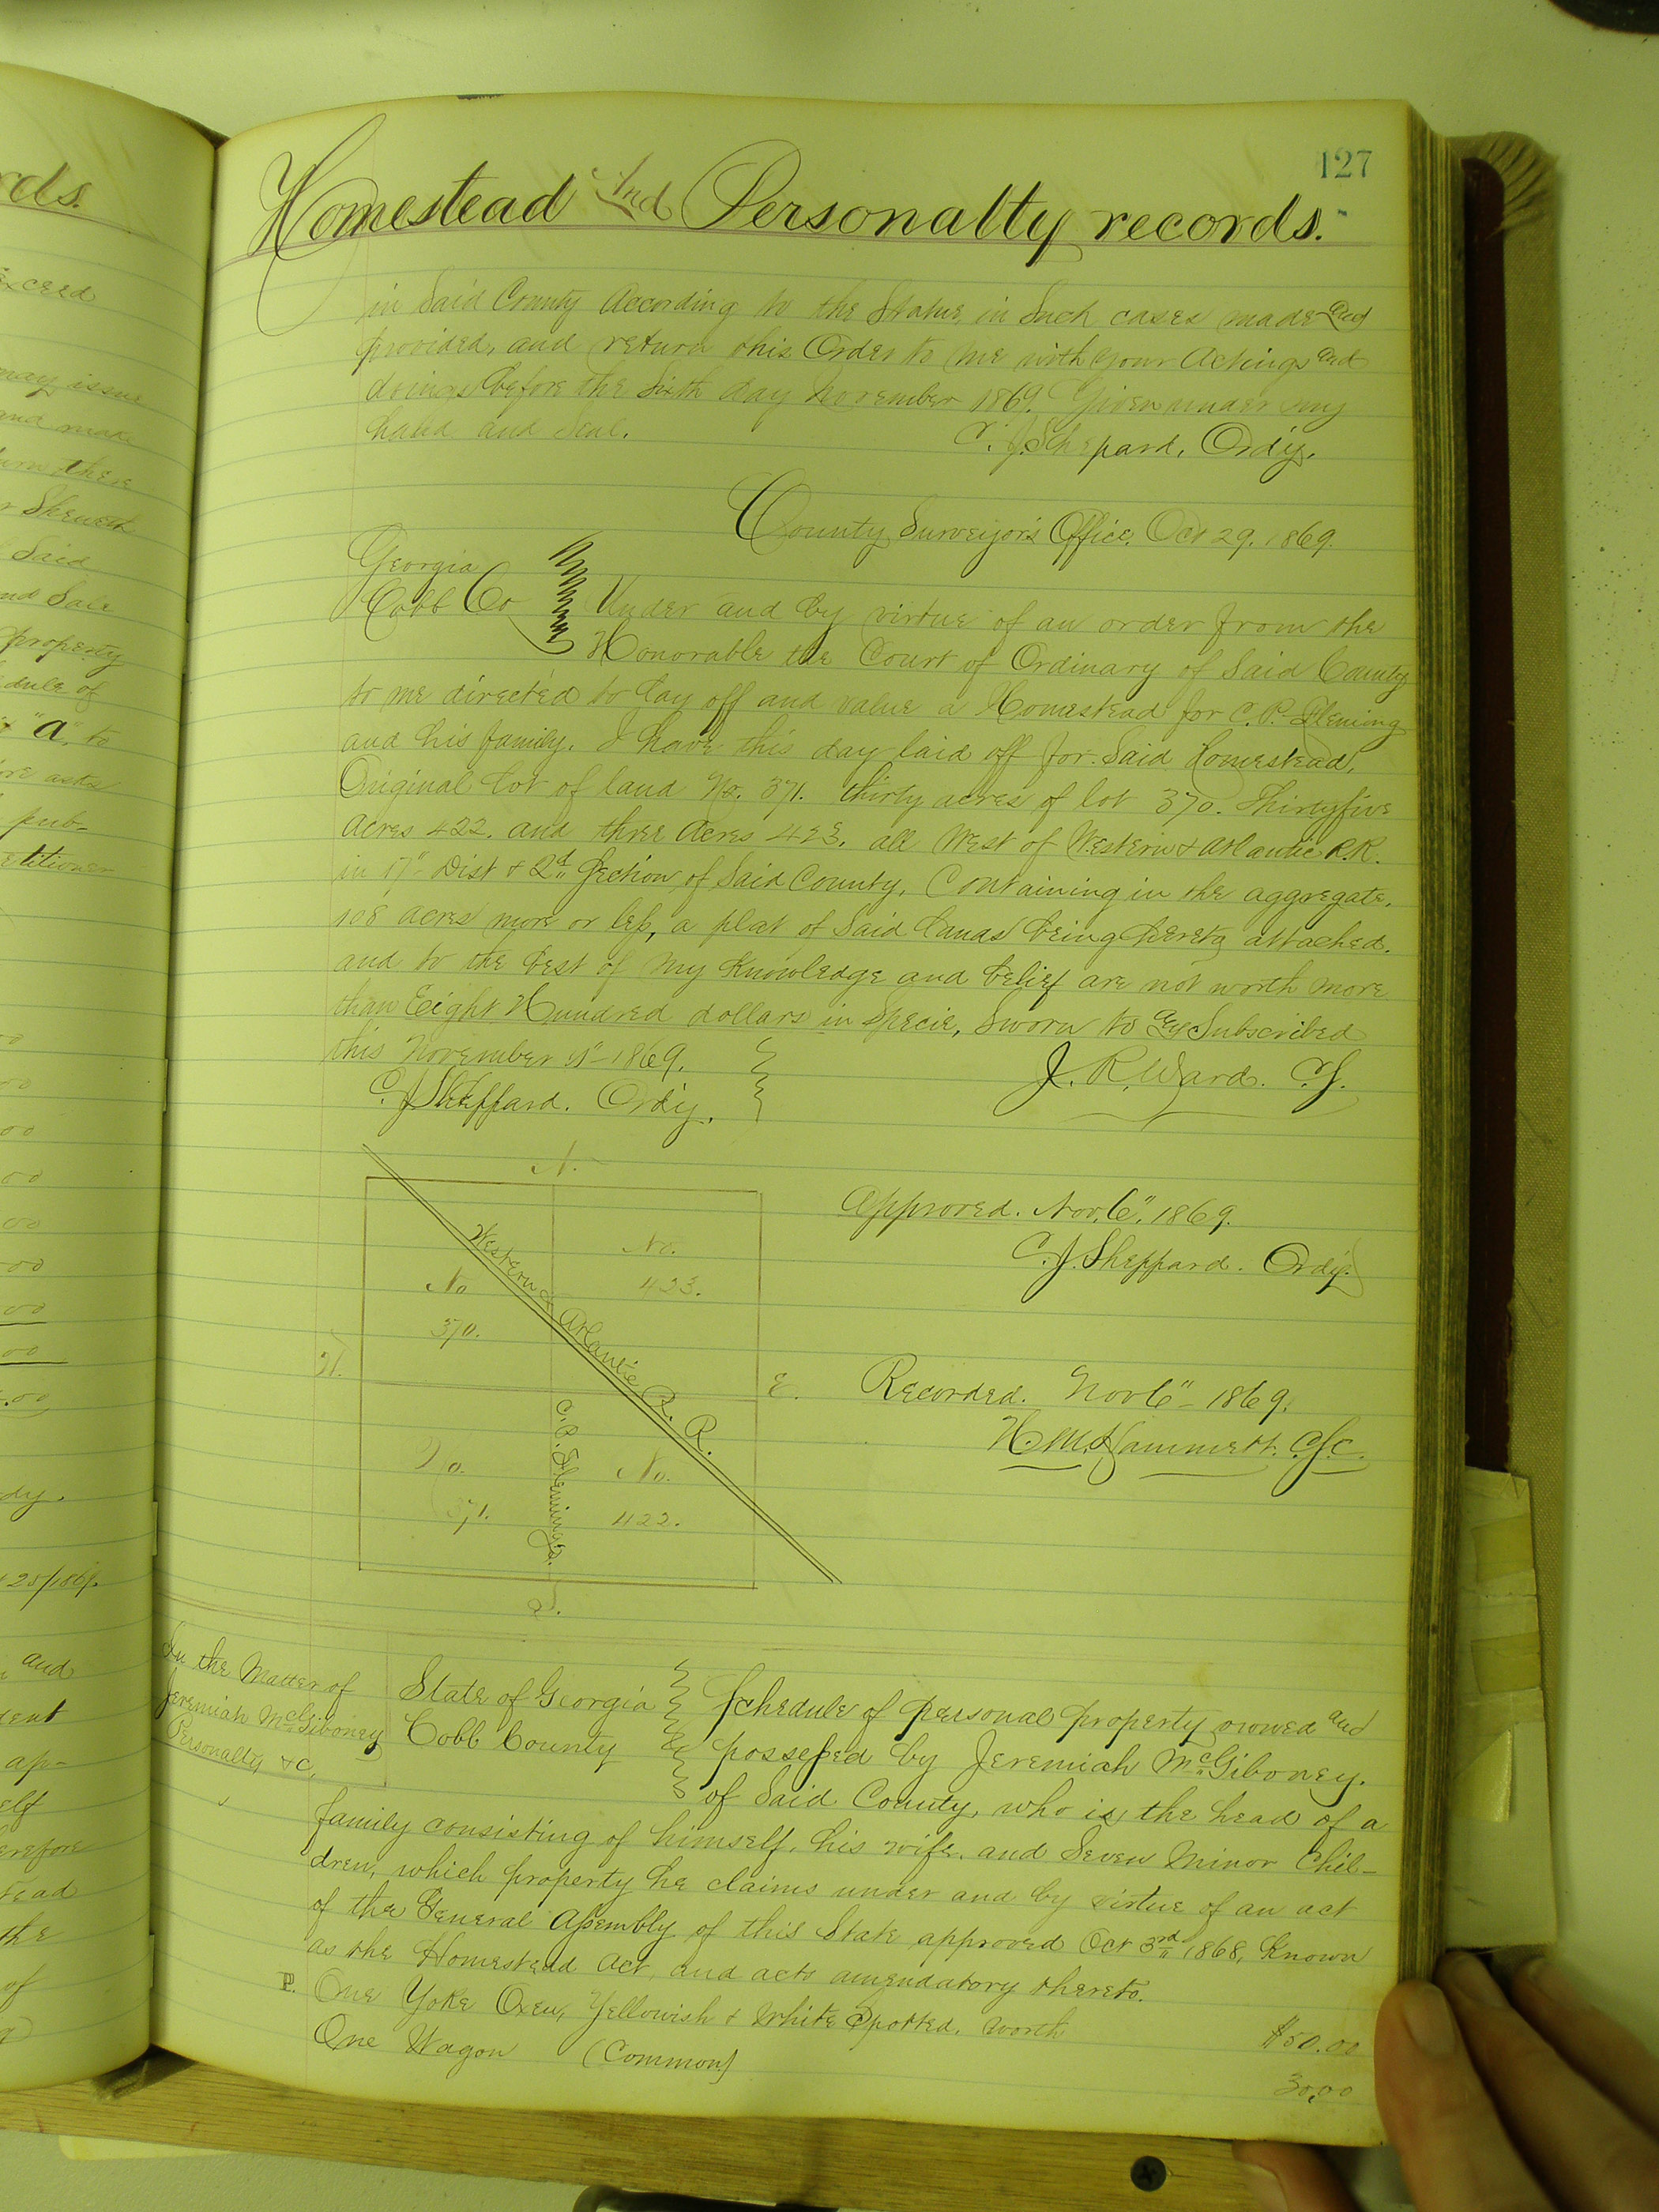 127
Homestead And Personalty records.
in Said County According to the Statue, in Such cases made and
provided, and return this Order to me with your Actings and
doings before the Sixth day November 1869. Given under my
hand and Seal.
C. J. Shepard, Ordy.
County Surveyor's Office, Oct 29, 1869.
Georgia
Cobb Co
Under and by virtue of an order from the
Honorable the Court of Ordinary of Said County
to me directed to lay off and value a Homestead for C. P. Fleming
and his family. I have this day laid off for Said homestead,
Original lot of land No. 371. thirty acres of lot 370. Thirtyfive
Acres 422. and three Acres 423. all West of Western & Atlantic R.R.
in 17" Dist & 2d Section of Said County, Containing in the aggregate,
108 acres more or less, a plat of Said lands being hereto attached.
and to the best of my Knowledge and belief are not worth more
than Eight Hundred dollars in Specie, Sworn to & Subscribed
this November 1869.
J. R. Ward. C.S.
C. J. Sheppard. Ordy.
N.
Western & Atlantic R. R.
No.
423.
No
370.
W.
E.
C. P. Fleming's.
No.
371.
No.
422.
S.
Approved. Nov. 6", 1869.
C. J. Sheppard. Ordy.
Recorded. Nov 6" - 1869.
H. M. Hammett. C.S.C.
In the Matter of
Jeremiah McGiboney
Personalty &C,
State of Georgia
Cobb County
Schedule of personal property owned and
possessed by Jeremiah McGiboney.
of Said County, who is the head of a
family consisting of himself, his wife, and Seven Minor Chil-
dren, which property he claims under and by virtue of an act
of the General Assembly of this State approved Oct 3rd 1868, Known
as the Homestead Act, and acts amendatory thereto.
One Yoke Oxen, Yellowish & White Spotted, worth $50.00
One Wagon (Common) 30.00